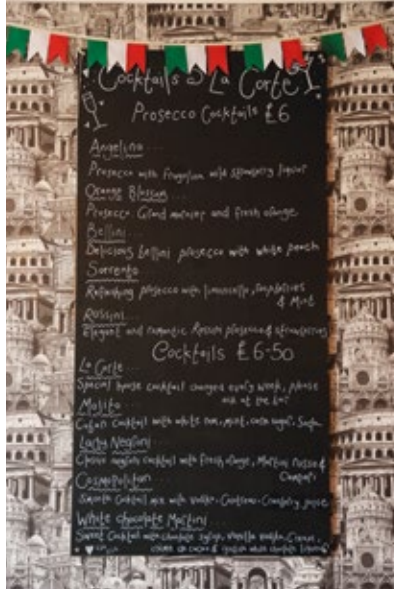 Cocktails @ La Corte
Prosecco Cocktails £6
Angelina
Prosecco with Fragolino wild strawberry liquor
Orange Blossom
Prosecco Grand marnier and fresh orange
Bellini
Delicious bellini prosecco with white peach
Sorrento
Refreshing prosecco with limoncello, raspberries
& Mint
Rossini
Elegant and romantic Rossini prosecco & strawberries
Cocktails £6-50
La Corte
Special house cocktail changed every week, please
ask at the bar
Mojito
Cuban Cocktail with white rum, mint, cane sugar, Soda
Lady Negroni
Classic negroni cocktail with fresh orange, Martini rosso &
Campari
Cosmopolitan
Smooth Cocktail mix with Vodka, Cointreau, Cranberry juice
White chocolate Martini
Sweet Cocktail with chocolate syrup, Vanilla vodka, Cream,
creme de cacao & white chocolate